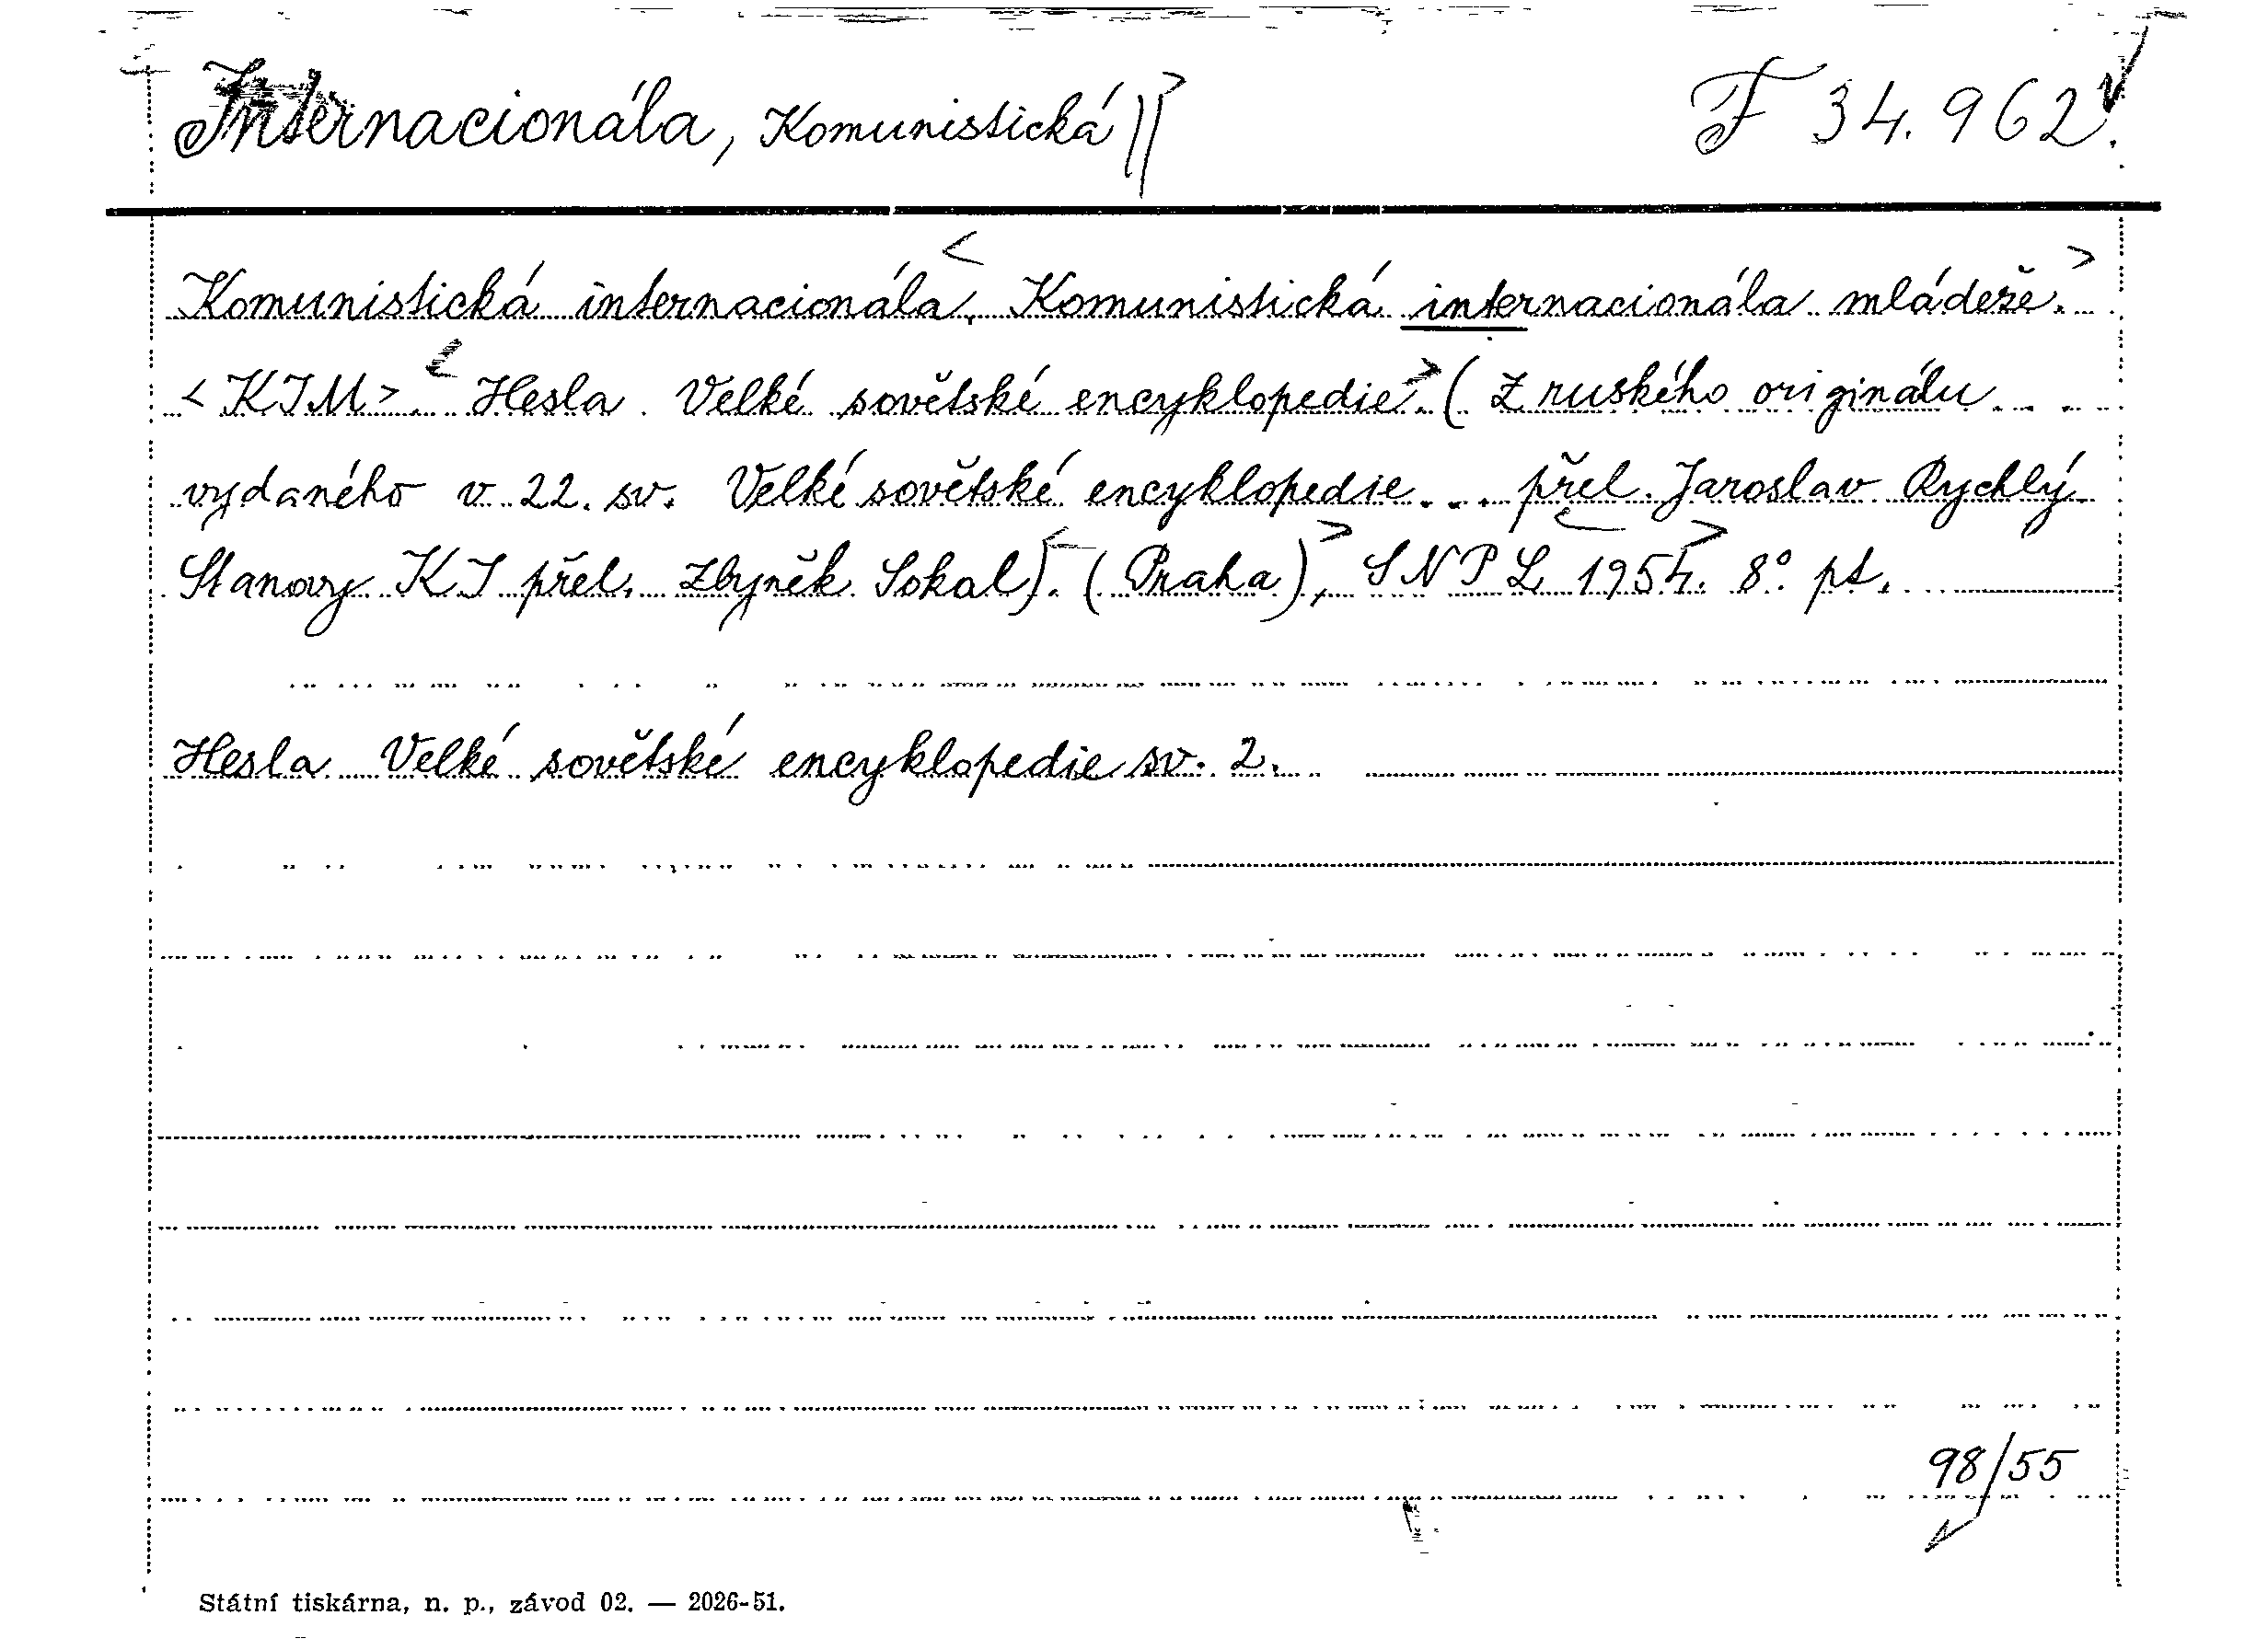 Internacionála, Komunistická F 34.962.
Komunistická internacionála, Komunistická internacionála mládeže.
<KIM>. Hesla Velké sovětské encyklopedie. (Z ruského originálu
vydaného v 22. sv. Velké sovětské encyklopedie... přel. Jaroslav Rychlý
Stanovy KI přel. Zbyněk Sokal). (Praha), SNPL 1954. 8° pt.
Hesla Velké sovětské encyklopedie sv. 2.
98/55
Státní tiskárna, n. p., závod 02. — 2026-51.